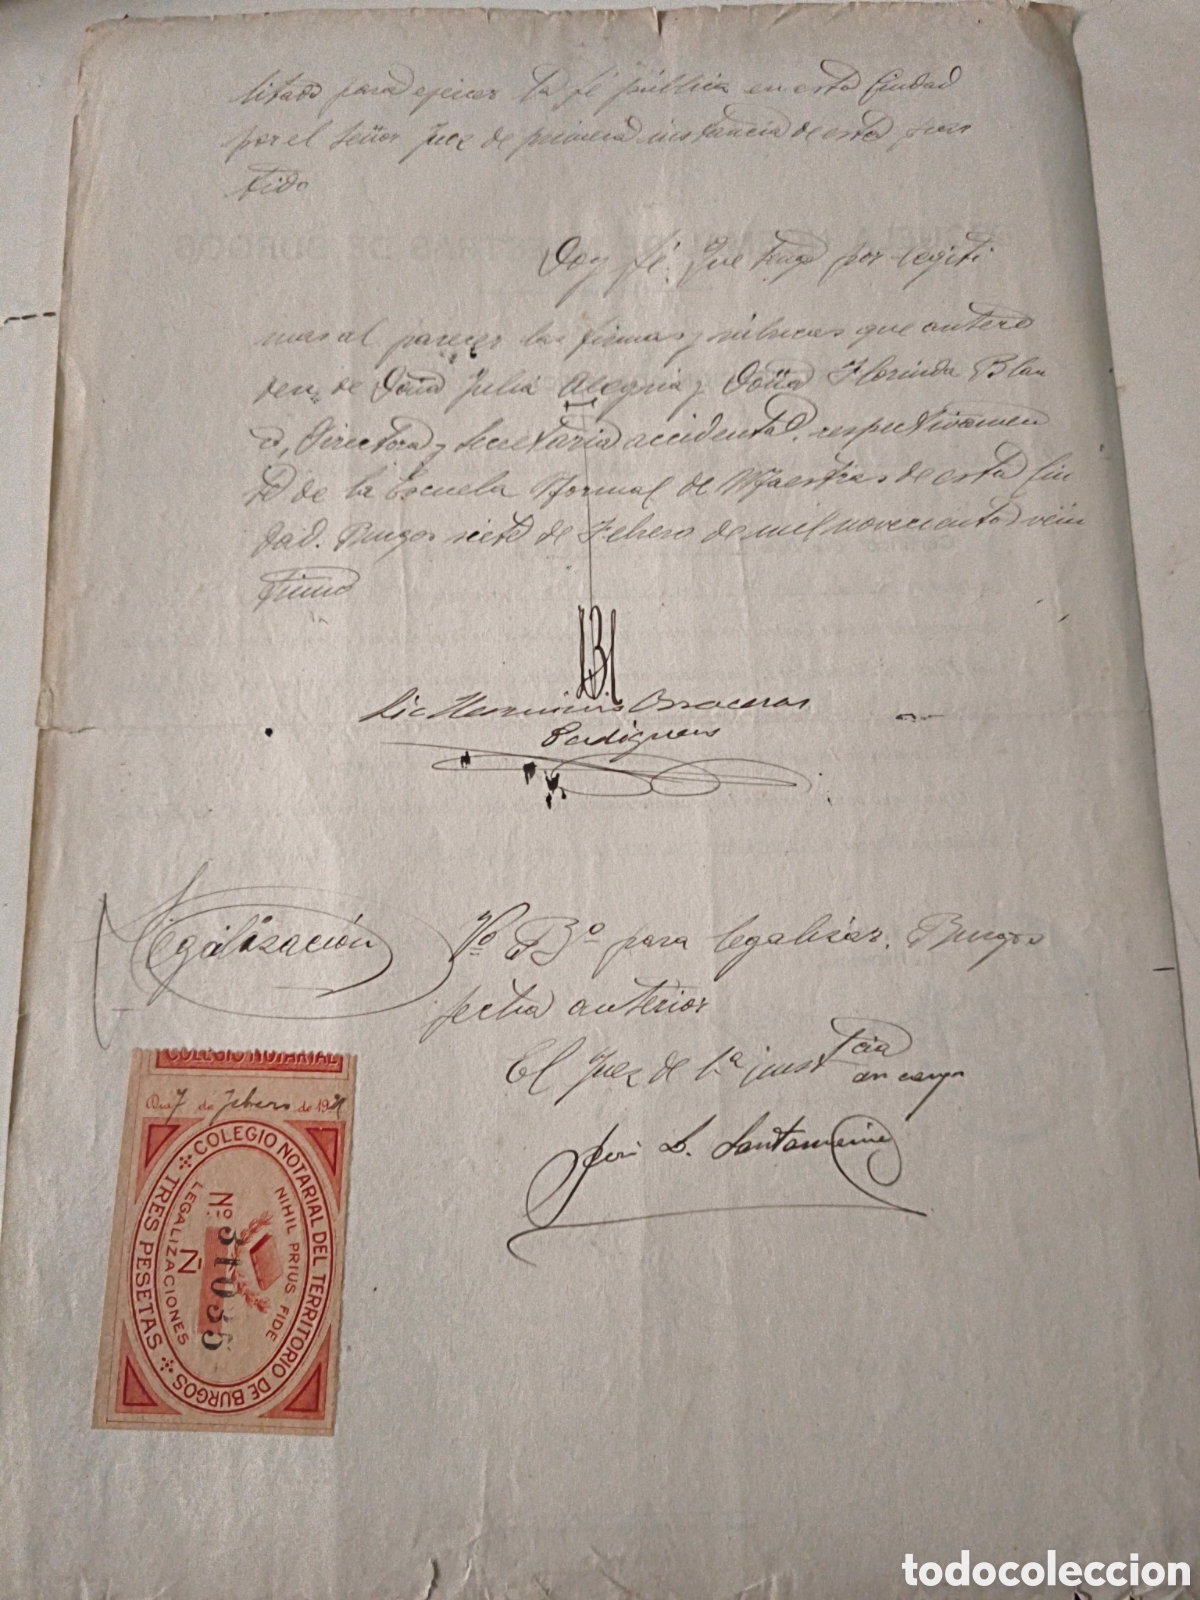 litado para ejercer la fé pública en esta Ciudad
por el Señor Juez de primera instancia de esta par
tido
Doy fé: Que tengo por legiti
mas al parecer las firmas y rúbricas que antece
den, de Doña Julia Alegria y Doña Florinda Blan
co, Directora y Secretaria accidental, respectivamen
te de la Escuela Normal de Maestras de esta Ciu
dad. Burgos siete de Febrero de mil novecientos vein
tiuno
Lic Herminio
Legalización
Vº Bº para legalizar. Burgos
fecha anterior
El Juez de 1ª instcia
en cargo
José L. Santamaría
COLEGIO NOTARIAL
Día 7 de febrero de 1921
COLEGIO NOTARIAL DEL TERRITORIO DE BURGOS
TRES PESETAS
NIHIL PRIUS FIDE
LEGALIZACIONES
Ñ
Nº 31035
todocoleccion